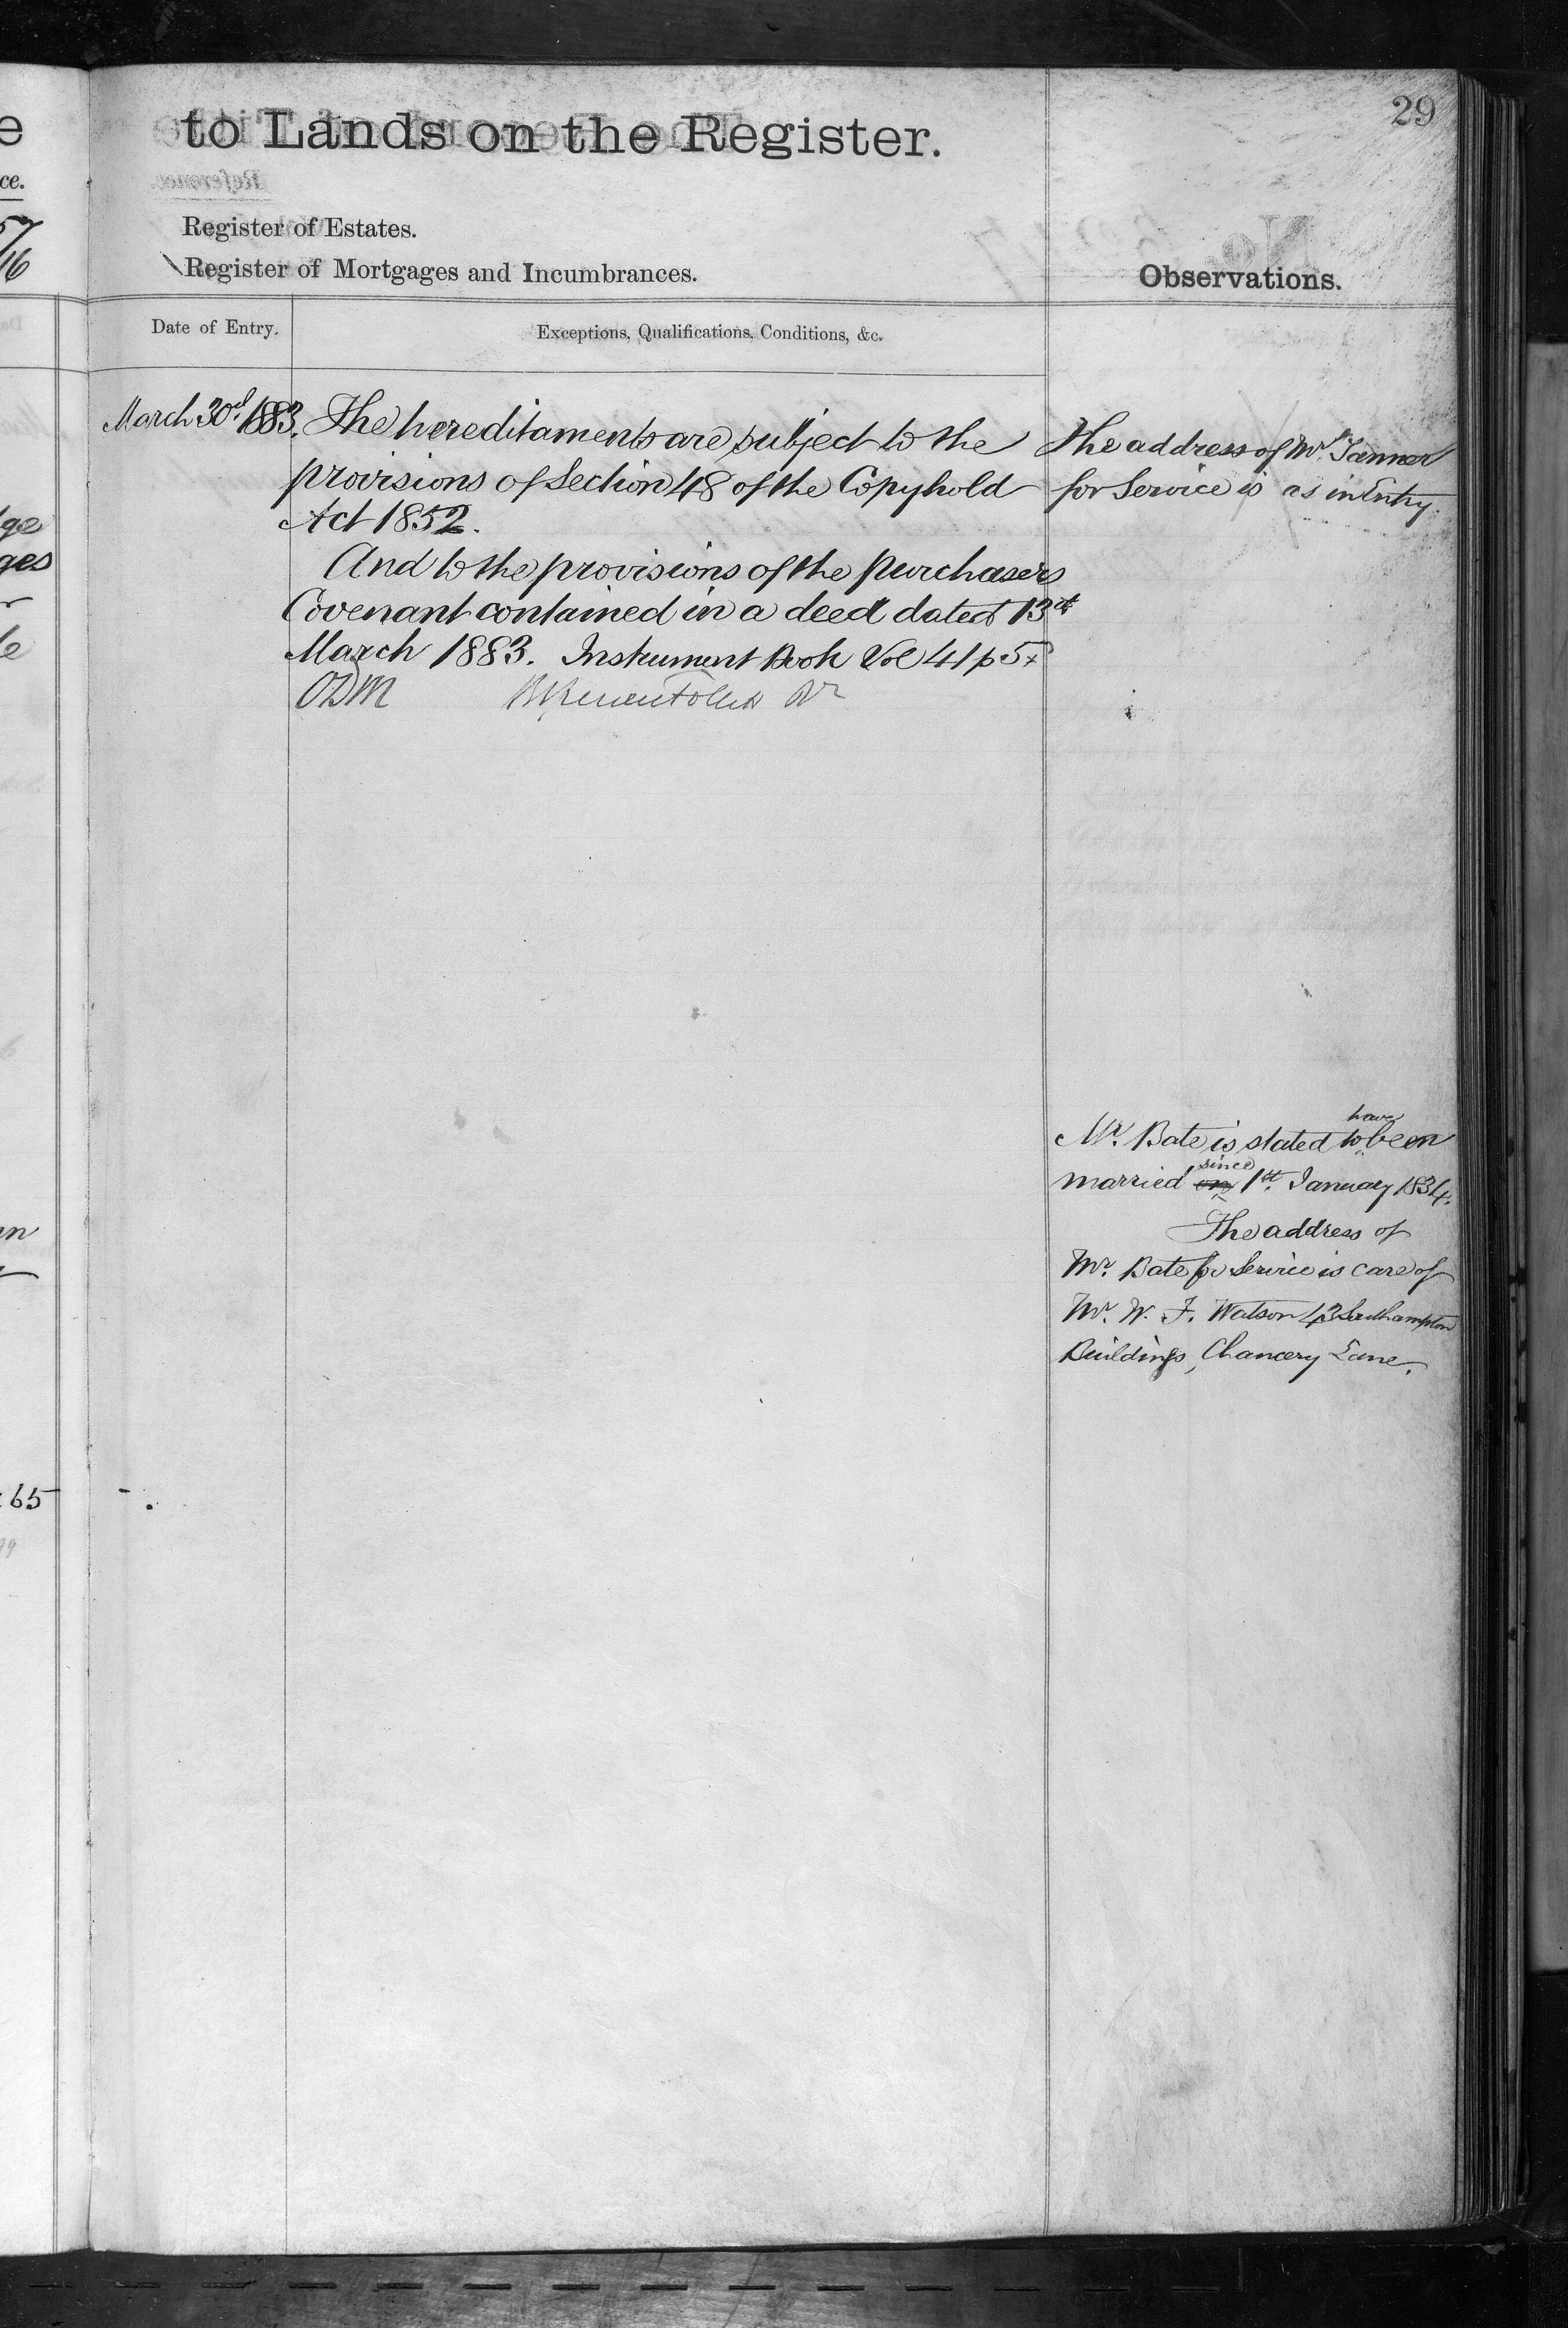 29
to Lands on the Register.
Register of Estates.
Register of Mortgages and Incumbrances.
Observations.
Date of Entry.
Exceptions, Qualifications, Conditions, &c.
March 30th 1883. The hereditaments are subject to the
provisions of Section 48 of the Copyhold
Act 1852.
And to the provisions of the purchasers
Covenant contained in a deed dated 13th
March 1883. Instrument Book Vol 41 p 5
ODM
The address of Mr. Tanner
for Service is as in Entry.
Mr. Bate is stated to have been
married since 1st. January 1834.
The address of
Mr. Bate for Service is care of
Mr. W. F. Watson 43 Southampton
Buildings, Chancery Lane.
e
ce.
16
ge
ges
le
65